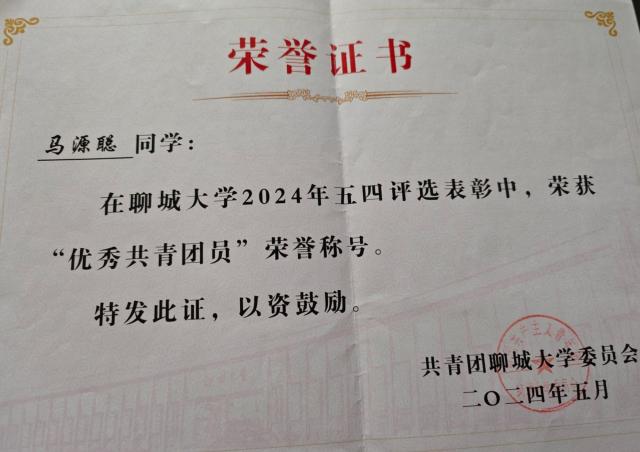 荣誉证书
马源聪 同学：
在聊城大学2024年五四评选表彰中，荣获
“优秀共青团员”荣誉称号。
特发此证，以资鼓励。
共青团聊城大学委员会
二〇二四年五月